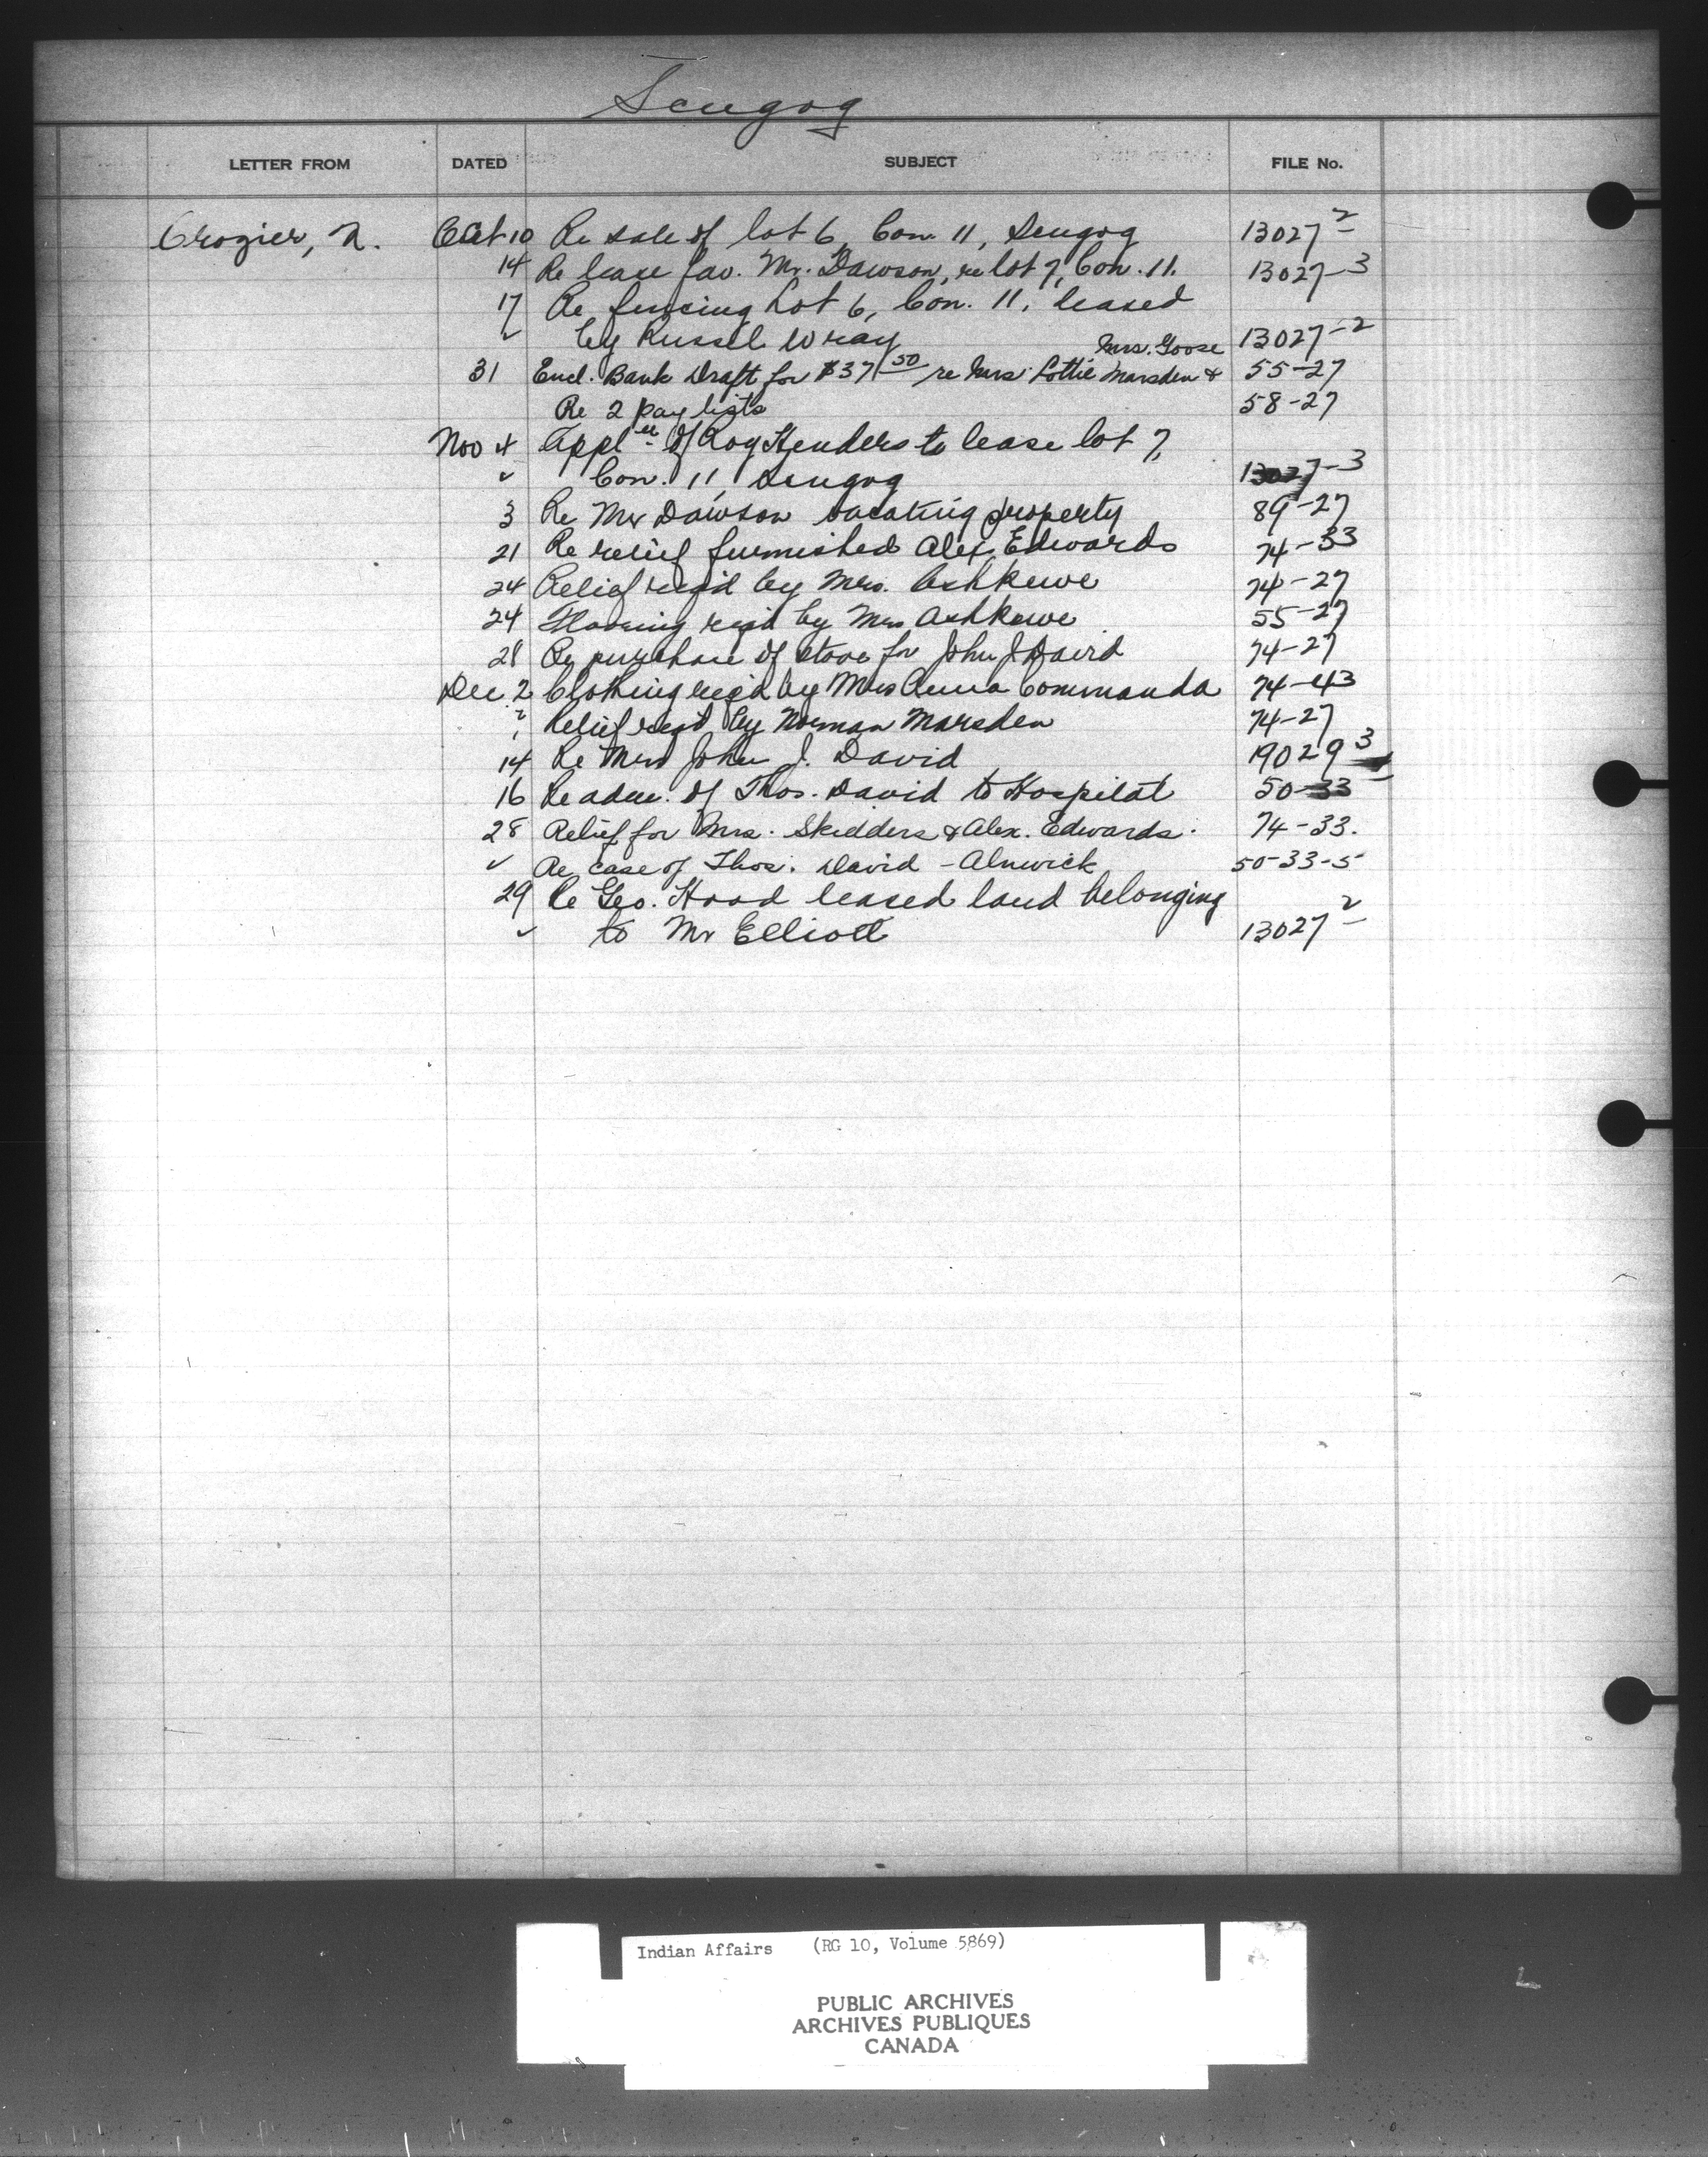 Scugog
LETTER FROM DATED SUBJECT FILE No.
Crozier, R. Oct 10 Re sale of lot 6, Con. 11, Scugog 13027-2
14 Re lease fav. Mr. Dawson, re lot 7, Con. 11. 13027-3
17 Re fencing Lot 6, Con. 11, leased
✓ by Russel Wray 13027-2
Mrs. Goose
31 Encl. Bank Draft for $37 50 re Mrs Lottie Marsden & 55-27
Re 2 pay lists 58-27
Nov 4 Appl'n of Roy Henders to lease lot 7,
✓ Con. 11, Scugog 13027-3
3 Re Mr Dawson vacating property 89-27
21 Re relief furnished Alex. Edwards 74-33
24 Relief req'd by Mrs. Ashkewe 74-27
24 Flooring req'd by Mrs Ashkewe 55-27
28 Re purchase of stove for John J. David 74-27
Dec. 2 Clothing req'd by Mrs Anna Commanda 74-43
Relief reqd by Norman Marsden 74-27
14 Re Mrs John J. David 19029-3
16 Re adm. of Thos. David to Hospital 50-33
28 Relief for Mrs. Skidders & Alex. Edwards. 74-33.
✓ Re case of Thos. David - Alnwick 50-33-5
29 Re Geo. Hood leased land belonging
✓ to Mr Elliott 13027-2
Indian Affairs (RG 10, Volume 5869)
PUBLIC ARCHIVES
ARCHIVES PUBLIQUES
CANADA